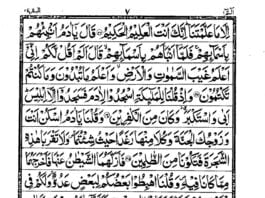 الم ٧ البقرة
الا ما علمتنا انك انت العليم الحكيم قال يادم انبئهم
باسمائهم فلما انباهم باسمائهم قال الم اقل لكم انى
اعلم غيب السموت والارض واعلم ما تبدون وما كنتم
تكتمون واذ قلنا للملئكة اسجدوا لادم فسجدوا الا ابليس
ابى واستكبر وكان من الكفرين وقلنا يادم اسكن انت
وزوجك الجنة وكلا منها رغدا حيث شئتما ولا تقربا هذه
الشجرة فتكونا من الظلمين فازلهما الشيطن عنها فاخرجهما
مما كانا فيه وقلنا اهبطوا بعضكم لبعض عدو ولكم فى